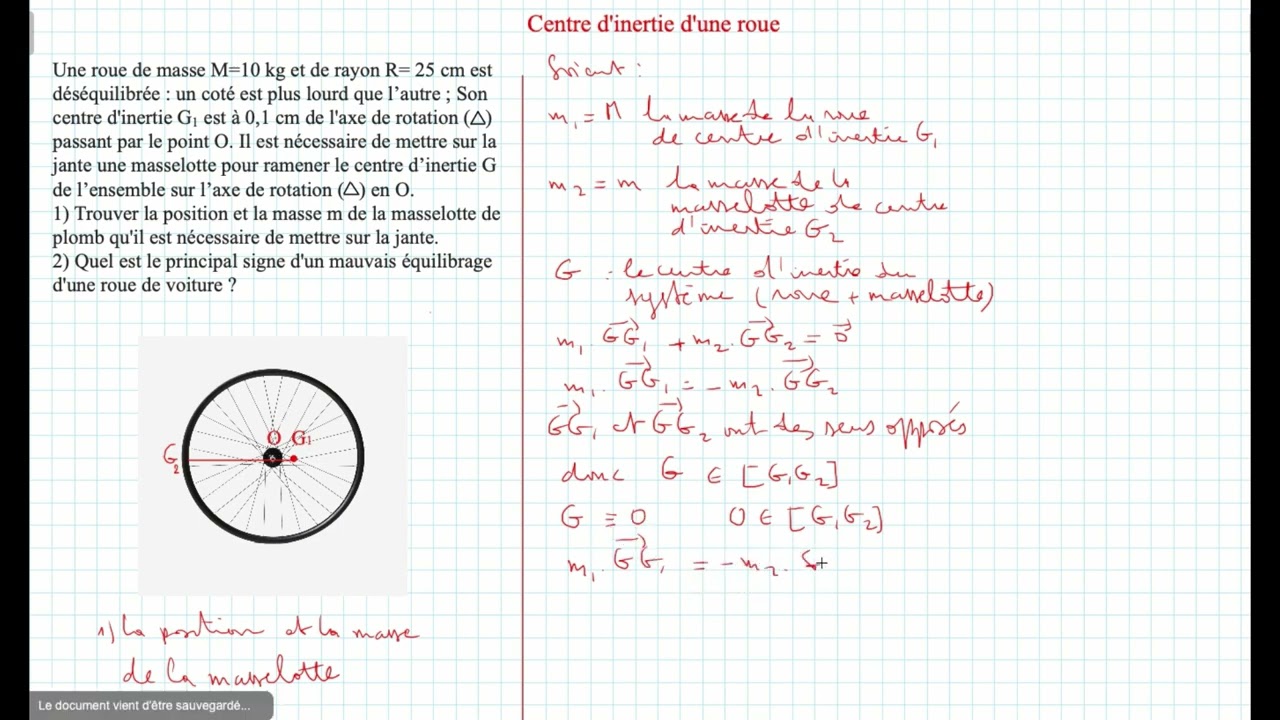 Centre d'inertie d'une roue
Une roue de masse M=10 kg et de rayon R= 25 cm est
déséquilibrée : un coté est plus lourd que l’autre ; Son
centre d'inertie G₁ est à 0,1 cm de l'axe de rotation (△)
passant par le point O. Il est nécessaire de mettre sur la
jante une masselotte pour ramener le centre d’inertie G
de l’ensemble sur l’axe de rotation (△) en O.
1) Trouver la position et la masse m de la masselotte de
plomb qu'il est nécessaire de mettre sur la jante.
2) Quel est le principal signe d'un mauvais équilibrage
d'une roue de voiture ?
O G₁
G₂
1) La position et la masse
de la masselotte
Le document vient d'être sauvegardé...
Soient :
m₁ = M la masse de la roue
de centre d'inertie G₁
m₂ = m la masse de la
masselotte de centre
d'inertie G₂
G : le centre d'inertie du
système (roue + masselotte)
m₁ . GG₁⃗ + m₂ . GG₂⃗ = 0⃗
m₁ . GG₁⃗ = - m₂ . GG₂⃗
GG₁⃗ et GG₂⃗ ont des sens opposés
donc G ∈ [G₁G₂]
G ≡ O O ∈ [G₁G₂]
m₁ . GG₁⃗ = - m₂ .